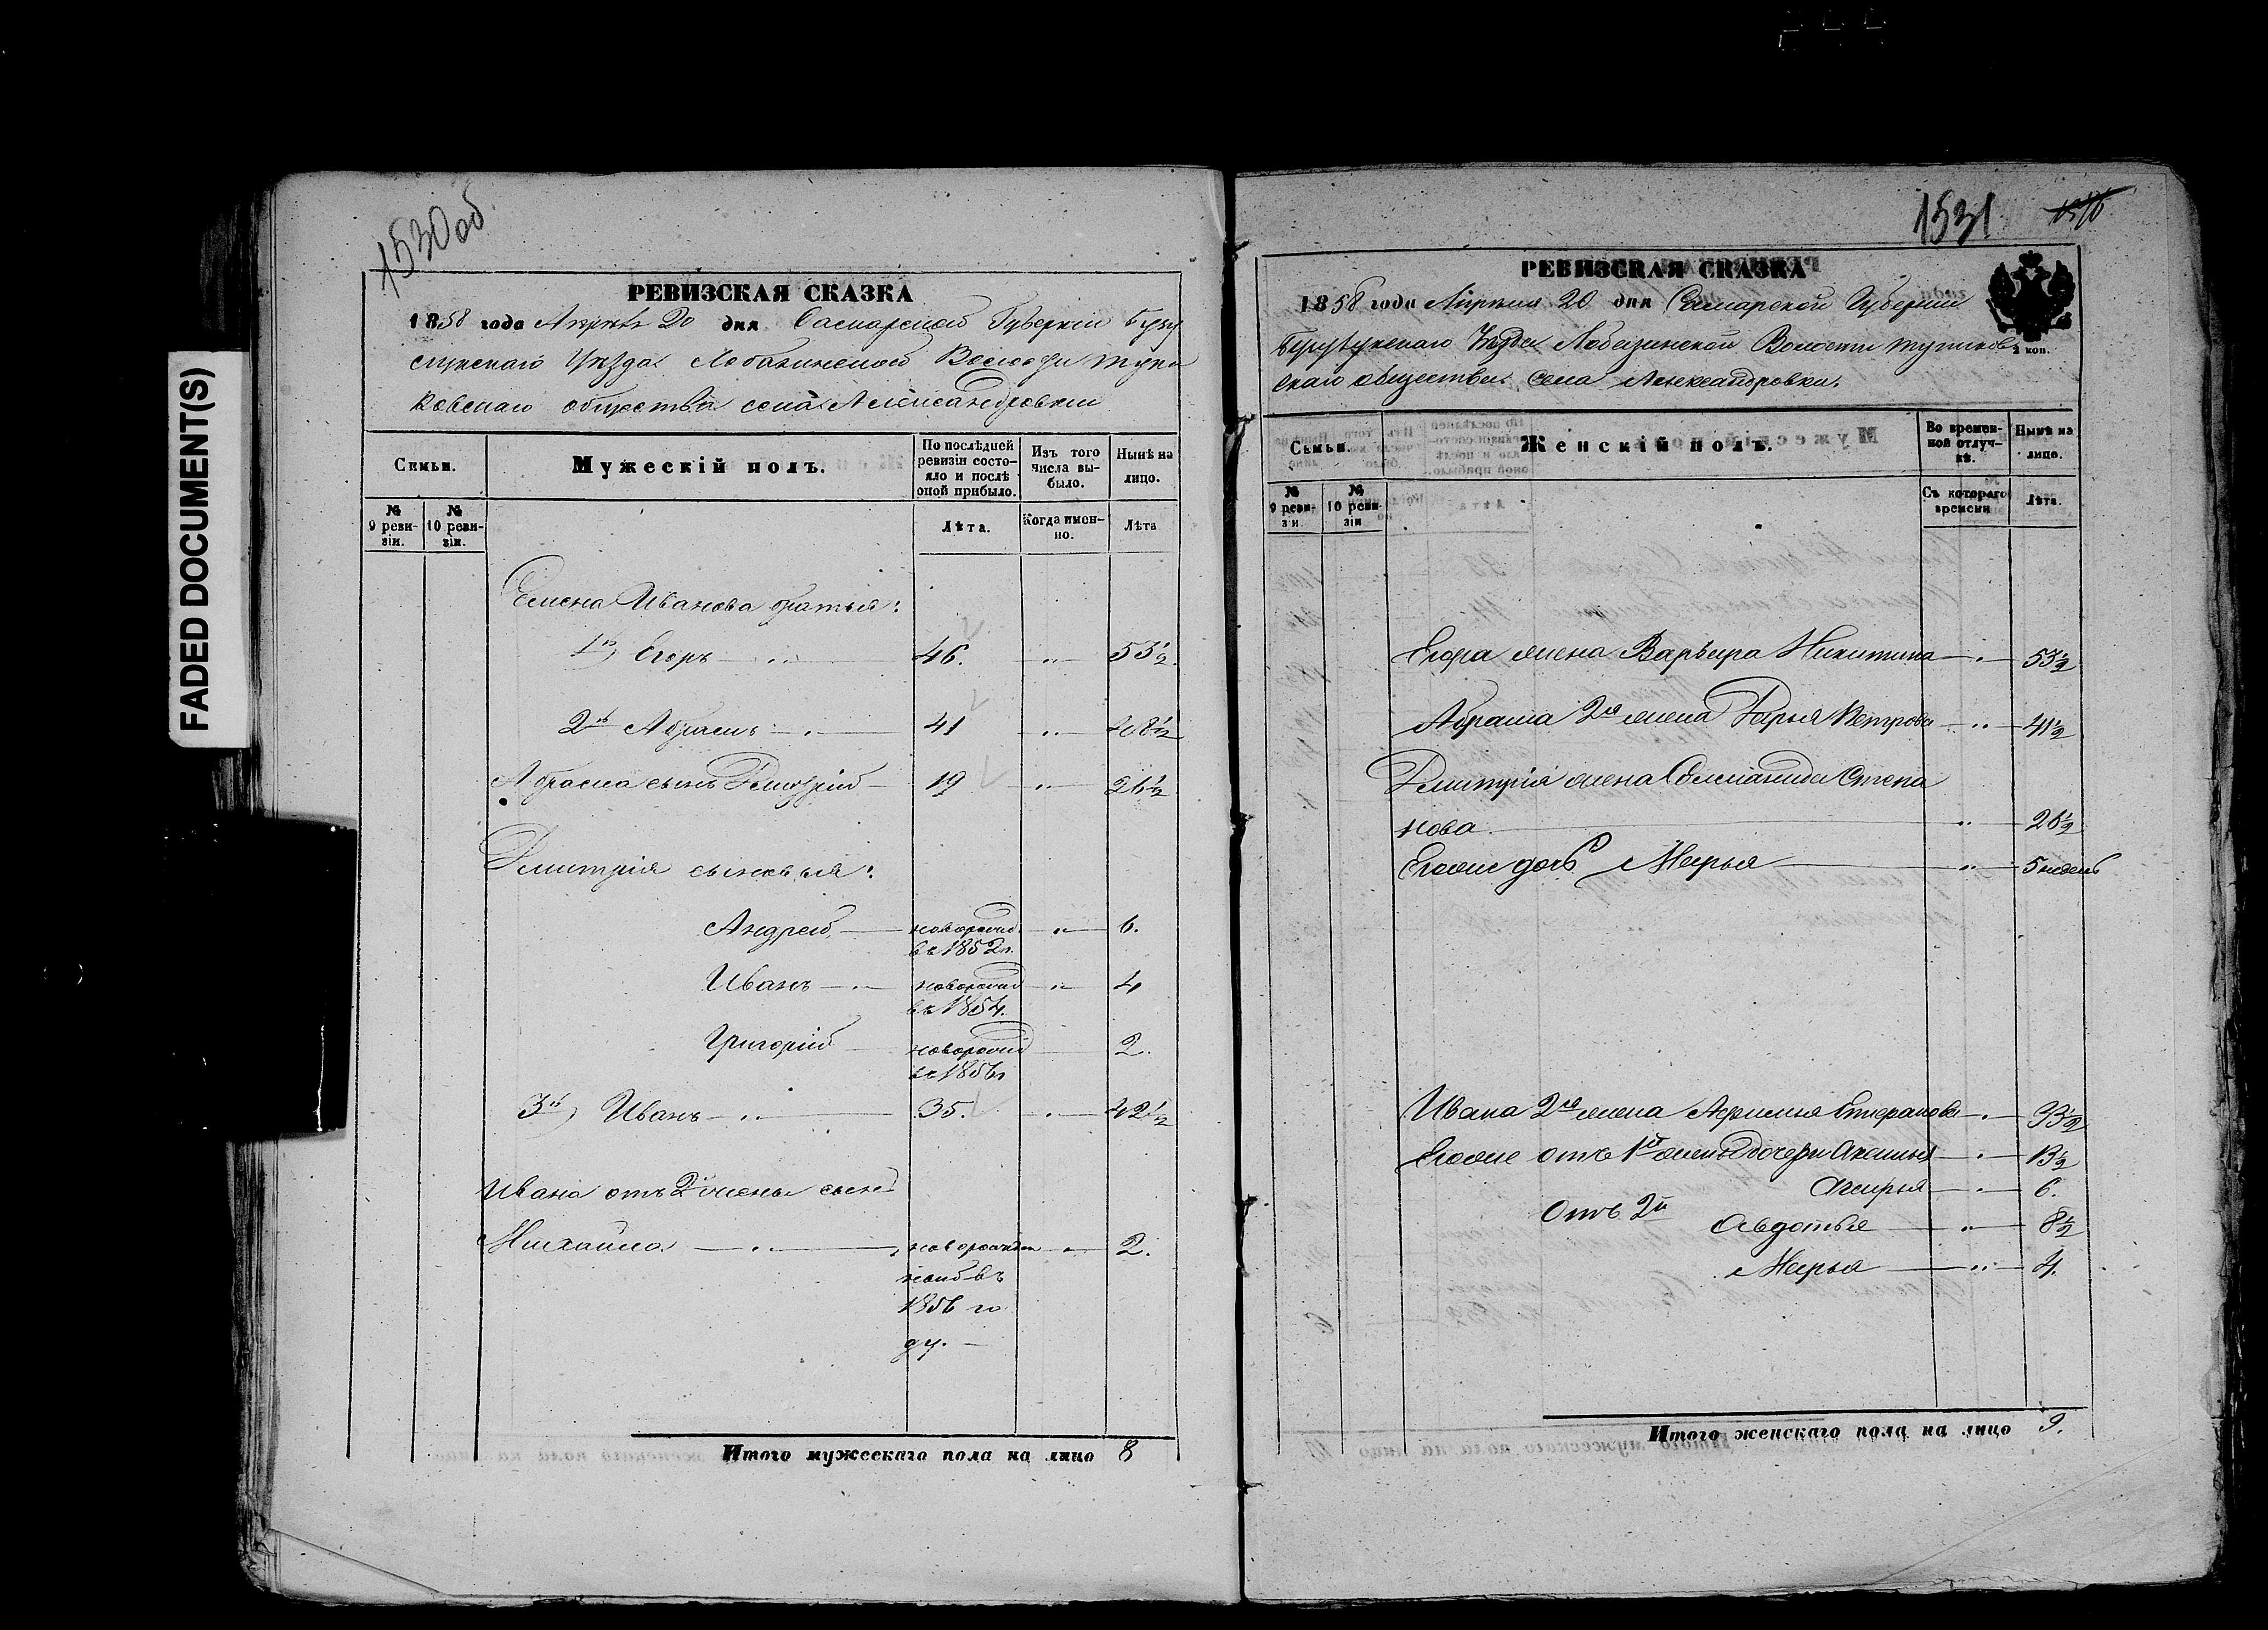 FADED DOCUMENT(S)
1530 об
РЕВИЗСКАЯ СКАЗКА
1858 года Апрѣля 20 дня Самарской Губерніи Бузу
лукскаго Уѣзда Лобазинской Волости
ковскаго общества села Александровки
Семьи.
Мужескій полъ.
По послѣдней ревизіи состояло и послѣ оной прибыло.
Изъ того числа выбыло.
Нынѣ на лицо.
№ 9 ревизіи.
№ 10 ревизіи.
Лѣта.
Когда именно.
Лѣта
Семена Иванова братья:
1й) Егоръ 46. 53½
2й Абрамъ 41 48½
Абрама сынъ Дмитрій 19 26½
Дмитрія сыновья:
Андрей новорожд. 6.
въ 1852 г.
Иванъ новорожд 4
въ 1854.
Григорій новорожд 2.
въ 1856 г
3й) Иванъ 35. 42½
Ивана отъ 2й жены сынъ
Михайла новорожден 2.
ной въ
1856 го
ду.
Итого мужескаго пола на лицо 8
1531
РЕВИЗСКАЯ СКАЗКА
1858 года Апрѣля 20 дня Самарской Губерніи
Бузулукскаго Уѣзда Лобазинской Волости
скаго общества села Александровки.
2 коп.
Семьи.
Женскій полъ.
Во временной отлучкѣ.
Нынѣ на лицо.
№ 9 ревизіи
№ 10 ревизіи
Съ котораго времени
Лѣта.
Егора жена Варвара Никитина 53½
Абрама 2я жена Дарья Петрова 41½
Дмитрія жена Соломанида Степа
нова 26½
Егоже дочь Марья 5 недель
Ивана 2я жена 33½
Егоже отъ 1й жены дочери 13½
6.
Отъ 2й Авдотья 8½
Марья 4.
Итого женскаго пола на лицо 9.